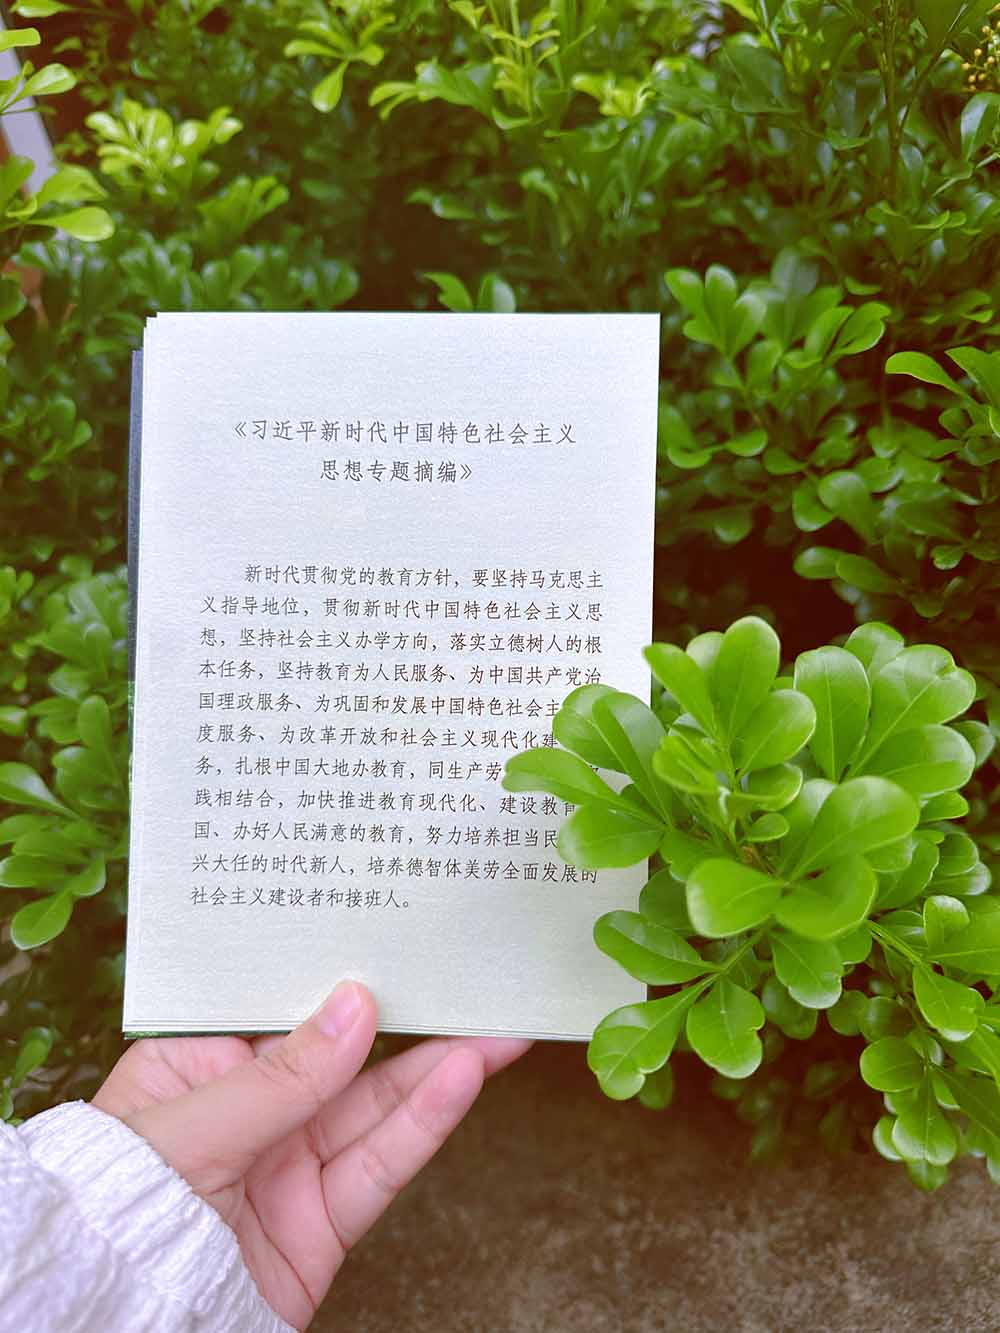 《习近平新时代中国特色社会主义
思想专题摘编》
新时代贯彻党的教育方针，要坚持马克思主
义指导地位，贯彻新时代中国特色社会主义思
想，坚持社会主义办学方向，落实立德树人的根
本任务，坚持教育为人民服务、为中国共产党治
国理政服务、为巩固和发展中国特色社会主
度服务、为改革开放和社会主义现代化建
务，扎根中国大地办教育，同生产劳
践相结合，加快推进教育现代化、建设教育
国、办好人民满意的教育，努力培养担当民
兴大任的时代新人，培养德智体美劳全面发展的
社会主义建设者和接班人。